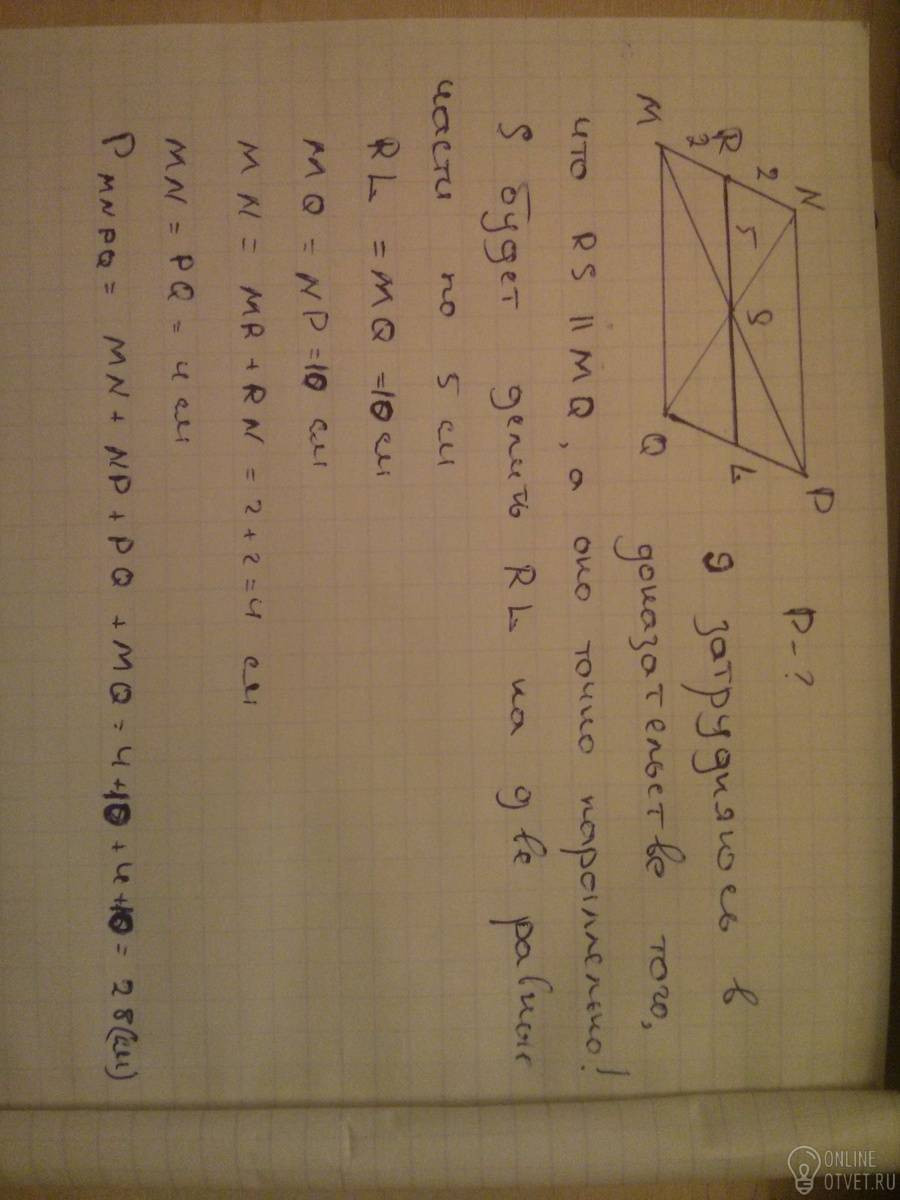 N P
2
R 5 S L
2
M Q
P-?
Я затрудняюсь в
доказательстве того,
что RS || MQ, а оно точно параллельно!
S будет делить RL на две равные
части по 5 см
RL = MQ = 10 см
MQ = NP = 10 см
MN = MR + RN = 2 + 2 = 4 см
MN = PQ = 4 см
P MNPQ = MN + NP + PQ + MQ = 4 + 10 + 4 + 10 = 28 (см)
ONLINE
OTVET.RU